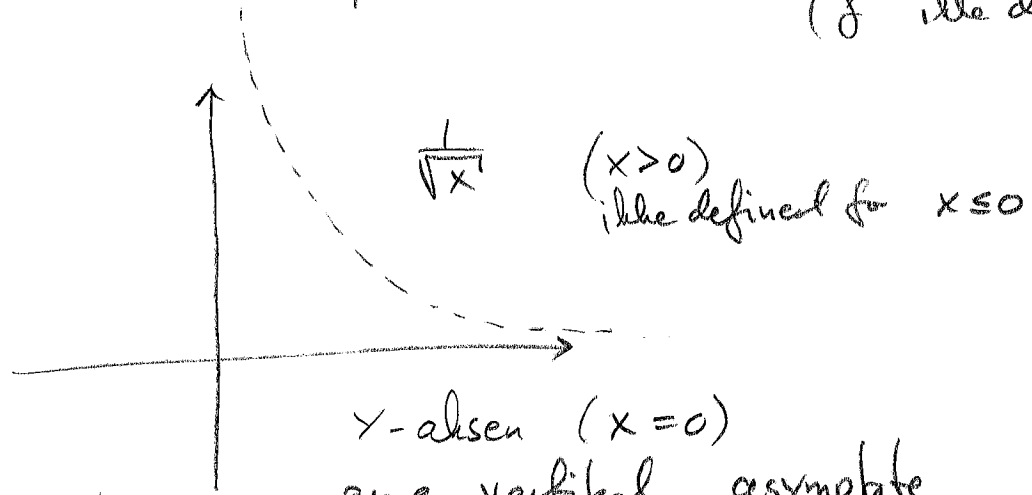 (f ikke de
1/√x (x>0)
ikke defined for x ≤ 0
Y-aksen (x = 0)
en vertikal asymptote